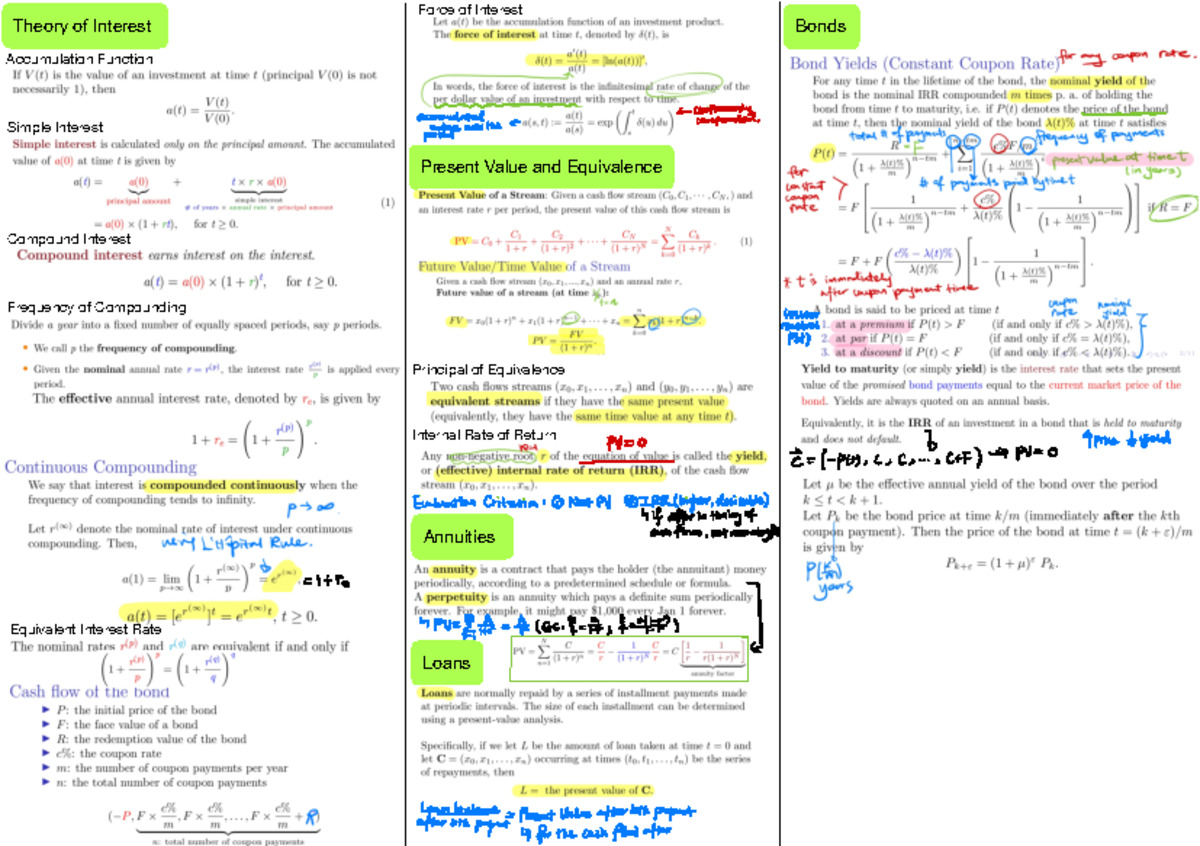 Theory of Interest
Accumulation Function
If V(t) is the value of an investment at time t (principal V(0) is not
necessarily 1), then
a(t) = V(t)/V(0).
Simple Interest
Simple interest is calculated only on the principal amount. The accumulated
value of a(0) at time t is given by
a(t) = a(0) + t × r × a(0)
principal amount simple interest
# of years × annual rate × principal amount
(1)
= a(0) × (1 + rt), for t ≥ 0.
Compound Interest
Compound interest earns interest on the interest.
a(t) = a(0) × (1 + r)^t, for t ≥ 0.
Frequency of Compounding
Divide a year into a fixed number of equally spaced periods, say p periods.
• We call p the frequency of compounding.
• Given the nominal annual rate r = r^(p), the interest rate r^(p)/p is applied every
period.
The effective annual interest rate, denoted by r_e, is given by
1 + r_e = (1 + r^(p)/p)^p.
Continuous Compounding
We say that interest is compounded continuously when the
frequency of compounding tends to infinity.
p → ∞
Let r^(∞) denote the nominal rate of interest under continuous
compounding. Then, using L'Hôpital Rule.
a(1) = lim p→∞ (1 + r^(∞)/p)^p = e^r^(∞) = 1 + r_e
a(t) = [e^r^(∞)]^t = e^r^(∞)t, t ≥ 0.
Equivalent Interest Rate
The nominal rates r^(p) and r^(q) are equivalent if and only if
(1 + r^(p)/p)^p = (1 + r^(q)/q)^q
Cash flow of the bond
▶ P: the initial price of the bond
▶ F: the face value of a bond
▶ R: the redemption value of the bond
▶ c%: the coupon rate
▶ m: the number of coupon payments per year
▶ n: the total number of coupon payments
(−P, F × c%/m, F × c%/m, ..., F × c%/m + R)
n: total number of coupon payments
Force of Interest
Let a(t) be the accumulation function of an investment product.
The force of interest at time t, denoted by δ(t), is
δ(t) = a'(t)/a(t) = [ln(a(t))]',
In words, the force of interest is the infinitesimal rate of change of the
per dollar value of an investment with respect to time.
a(s, t) := a(t)/a(s) = exp(∫_s^t δ(u) du)
Present Value and Equivalence
Present Value of a Stream: Given a cash flow stream (C_0, C_1, ⋯, C_N,) and
an interest rate r per period, the present value of this cash flow stream is
PV = C_0 + C_1/(1+r) + C_2/(1+r)^2 + ⋯ + C_N/(1+r)^N = Σ_{k=0}^N C_k/(1+r)^k. (1)
Future Value/Time Value of a Stream
Given a cash flow stream (x_0, x_1, ..., x_n) and an annual rate r,
Future value of a stream (at time
FV = x_0(1+r)^n + x_1(1+r)^{n−1} + ⋯ + x_n = Σ_{k=0}^n x_k(1+r)^{n−k}.
PV = FV/(1+r)^n.
Principal of Equivalence
Two cash flows streams (x_0, x_1, ..., x_n) and (y_0, y_1, ..., y_n) are
equivalent streams if they have the same present value
(equivalently, they have the same time value at any time t).
Internal Rate of Return
PV = 0
Any non-negative root r of the equation of value is called the yield,
or (effective) internal rate of return (IRR), of the cash flow
stream (x_0, x_1, ..., x_n).
Evaluation Criteria: ① Net PV ② IRR (higher, desirable)
Annuities
An annuity is a contract that pays the holder (the annuitant) money
periodically, according to a predetermined schedule or formula.
A perpetuity is an annuity which pays a definite sum periodically
forever. For example, it might pay $1,000 every Jan 1 forever.
PV = Σ_{n=1}^N C/(1+r)^n = C/r − 1/(1+r)^N C/r = C [1/r − 1/r(1+r)^N]
annuity factor
Loans
Loans are normally repaid by a series of installment payments made
at periodic intervals. The size of each installment can be determined
using a present-value analysis.
Specifically, if we let L be the amount of loan taken at time t = 0 and
let C = (x_0, x_1, ..., x_n) occurring at times (t_0, t_1, ..., t_n) be the series
of repayments, then
L = the present value of C.
Bonds
Bond Yields (Constant Coupon Rate) for any coupon rate.
For any time t in the lifetime of the bond, the nominal yield of the
bond is the nominal IRR compounded m times p. a. of holding the
bond from time t to maturity, i.e. if P(t) denotes the price of the bond
at time t, then the nominal yield of the bond λ(t)% at time t satisfies
total # of payments frequency of payments
P(t) = R/(1 + λ(t)%/m)^{n−tm} + Σ c%F/m/(1 + λ(t)%/m)^i, present value at time t
(in years)
# of payments paid by time t
for constant coupon rate
= F [1/(1 + λ(t)%/m)^{n−tm} + c%/λ(t)% (1 − 1/(1 + λ(t)%/m)^{n−tm})] if R = F
= F + F (c% − λ(t)%/λ(t)%) [1 − 1/(1 + λ(t)%/m)^{n−tm}].
* t is immediately
after coupon payment time
A bond is said to be priced at time t
coupon rate nominal yield
1. at a premium if P(t) > F (if and only if c% > λ(t)%),
2. at par if P(t) = F (if and only if c% = λ(t)%),
3. at a discount if P(t) < F (if and only if c% < λ(t)%).
Yield to maturity (or simply yield) is the interest rate that sets the present
value of the promised bond payments equal to the current market price of the
bond. Yields are always quoted on an annual basis.
Equivalently, it is the IRR of an investment in a bond that is held to maturity
and does not default.
↑price ↓yield
C = (−P(t), C, C, ..., C+F) → PV = 0
Let μ be the effective annual yield of the bond over the period
k ≤ t < k + 1.
Let P_k be the bond price at time k/m (immediately after the kth
coupon payment). Then the price of the bond at time t = (k + ε)/m
is given by
P_{k+ε} = (1 + μ)^ε P_k.
P(k/m)
years